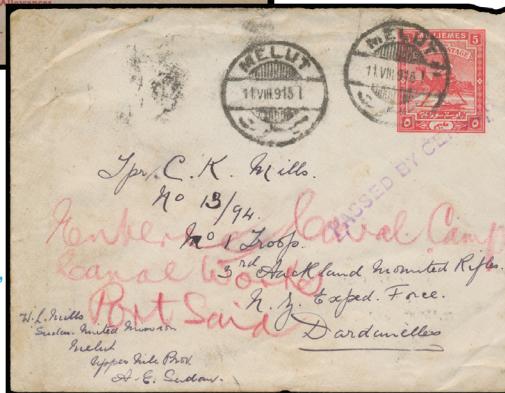 MELUT
11 VIII 915 1
MELUT
11 VIII 915 1
5 MILLIEMES 5
POSTAGE
٥ ٥
PASSED BY CENSOR
Tpr. C. K. Mills.
No 13/94.
No 1 Troop.
3rd Auckland Mounted Rifles.
N. Z. Exped. Force.
Dardanelles
Camp
Canal Works
Port Said
W. L. Mills
Sudan United Mission
Melut
Upper Nile Prov.
A. E. Sudan.